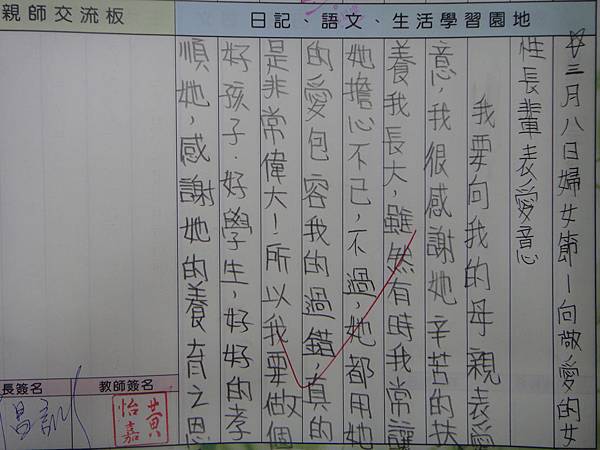 日記、語文、生活學習園地
☆三月八日婦女節—向敬愛的女
性長輩表愛意
我要向我的母親表愛
意,我很感謝她辛苦的扶
養我長大,雖然有時我常讓
她擔心不已,不過,她都用她
的愛包容我的過錯,真的
是非常偉大!所以我要做個
好孩子.好學生,好好的孝
順她,感謝她的養育之恩
親師交流板
教師簽名
黃
怡嘉
長簽名